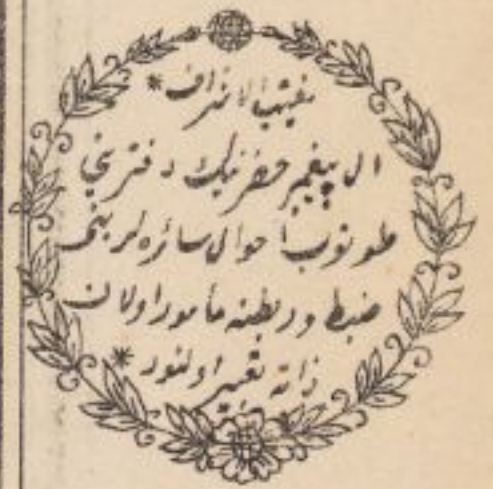 نقيب الاشراف *
ال پيغمبر حضرتلرينك دفتريني
طوتوب احوال سائره لريني
ضبط و ربطنه مأمور اولان
ذاته تعبير اولنور *